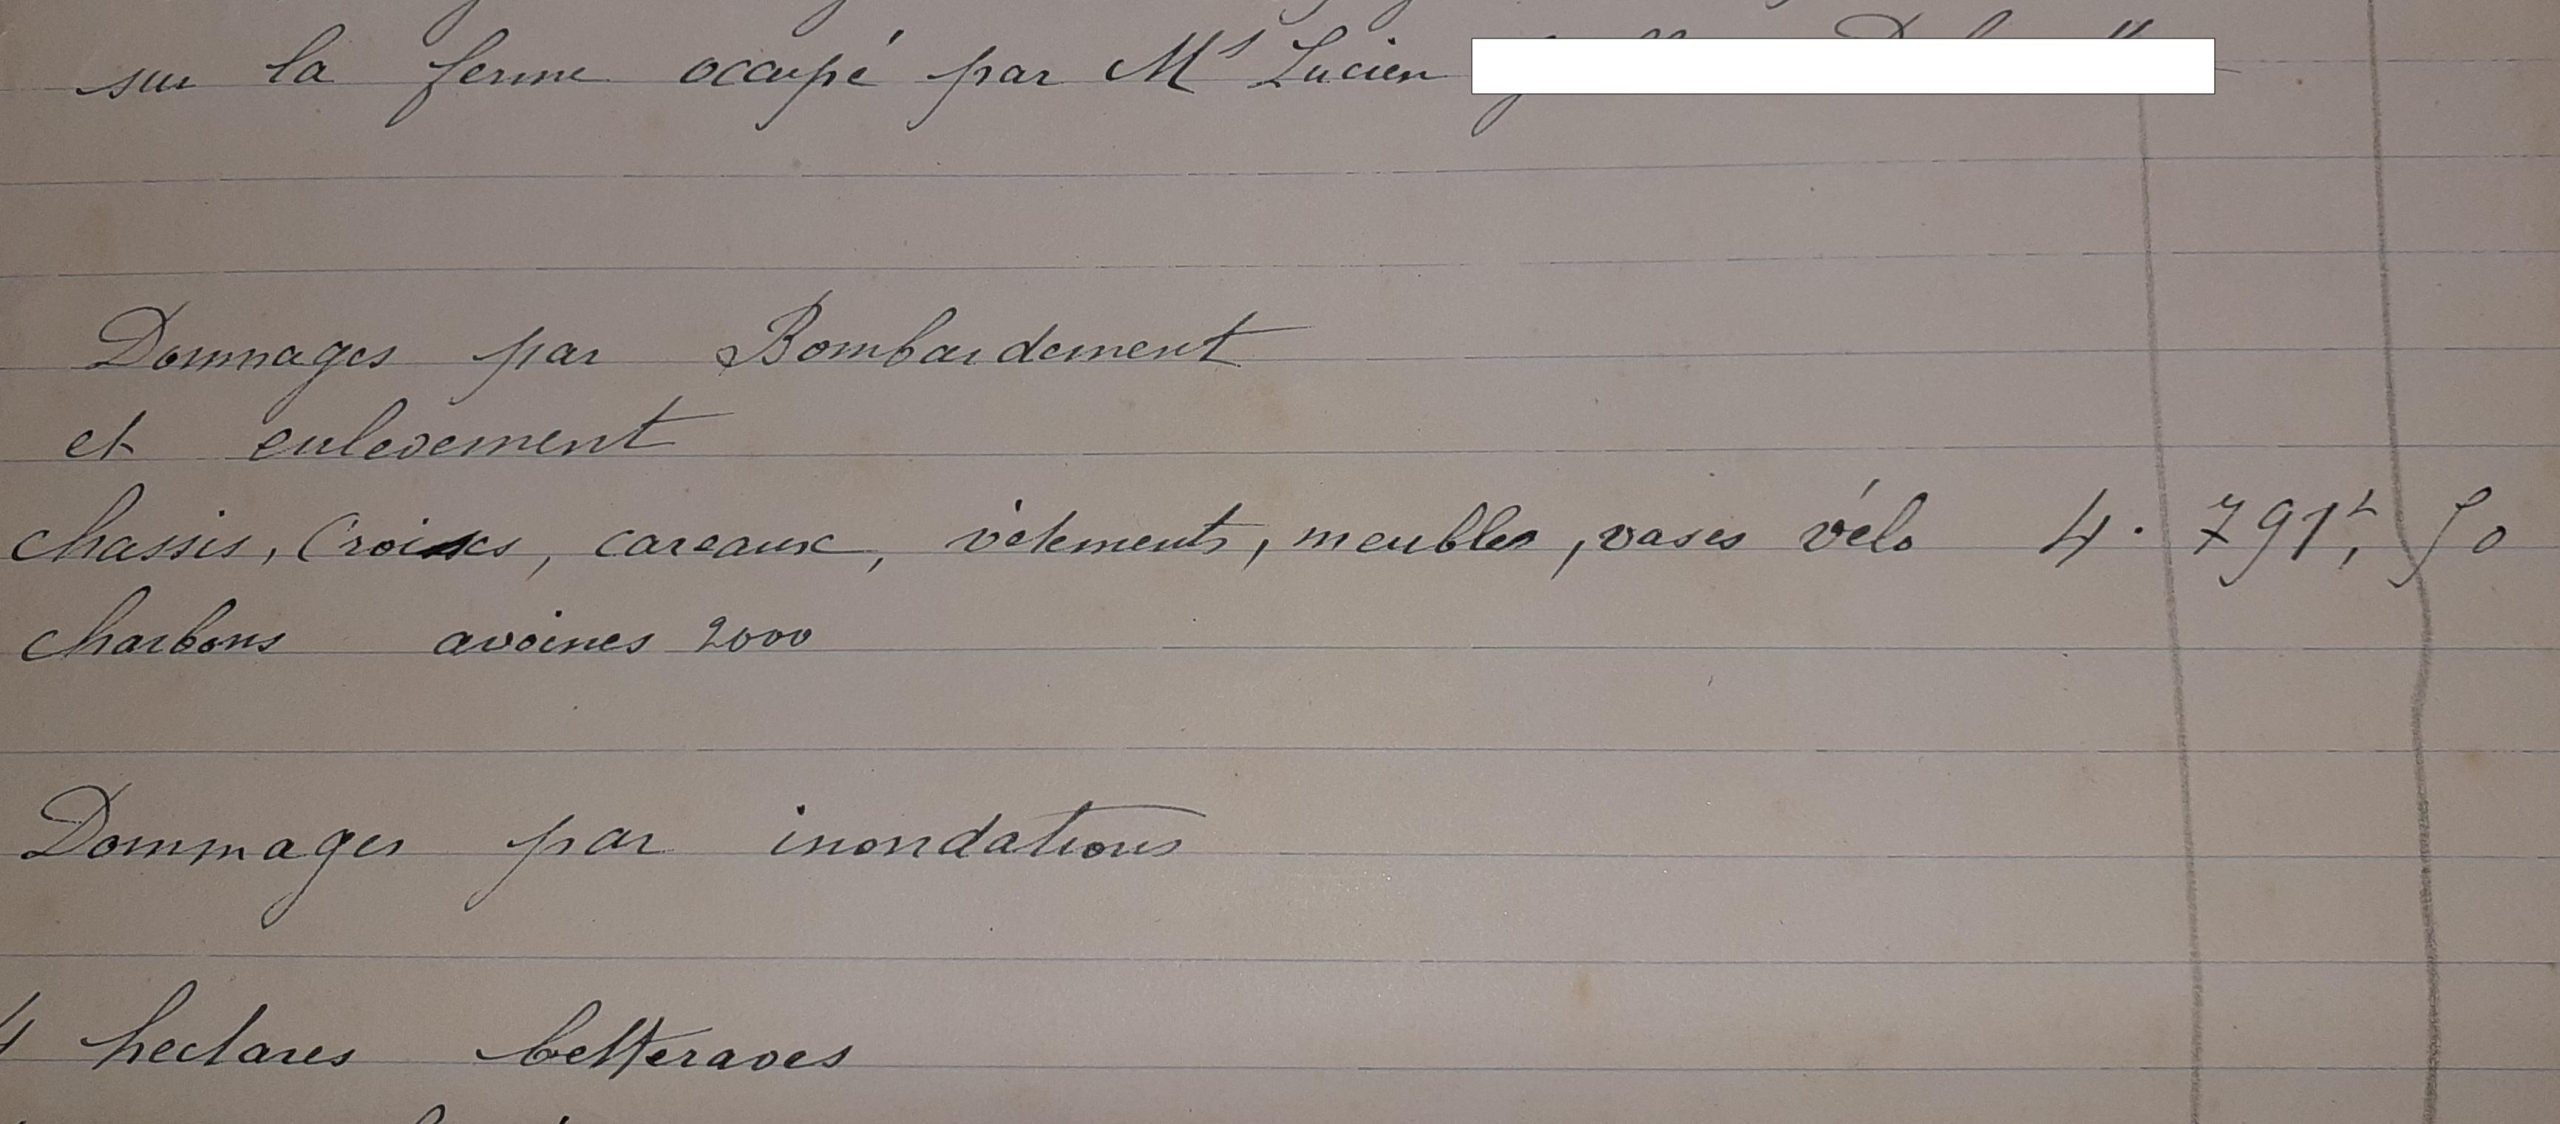 sur la ferme occupé par Mr Lucien
Dommages par Bombardement
et enlevement
chassis, Croisés, careaux, vêtements, meubles, vases vélo 4. 791f, 50
charbons avoines 2000
Dommages par inondations
4 hectares betteraves